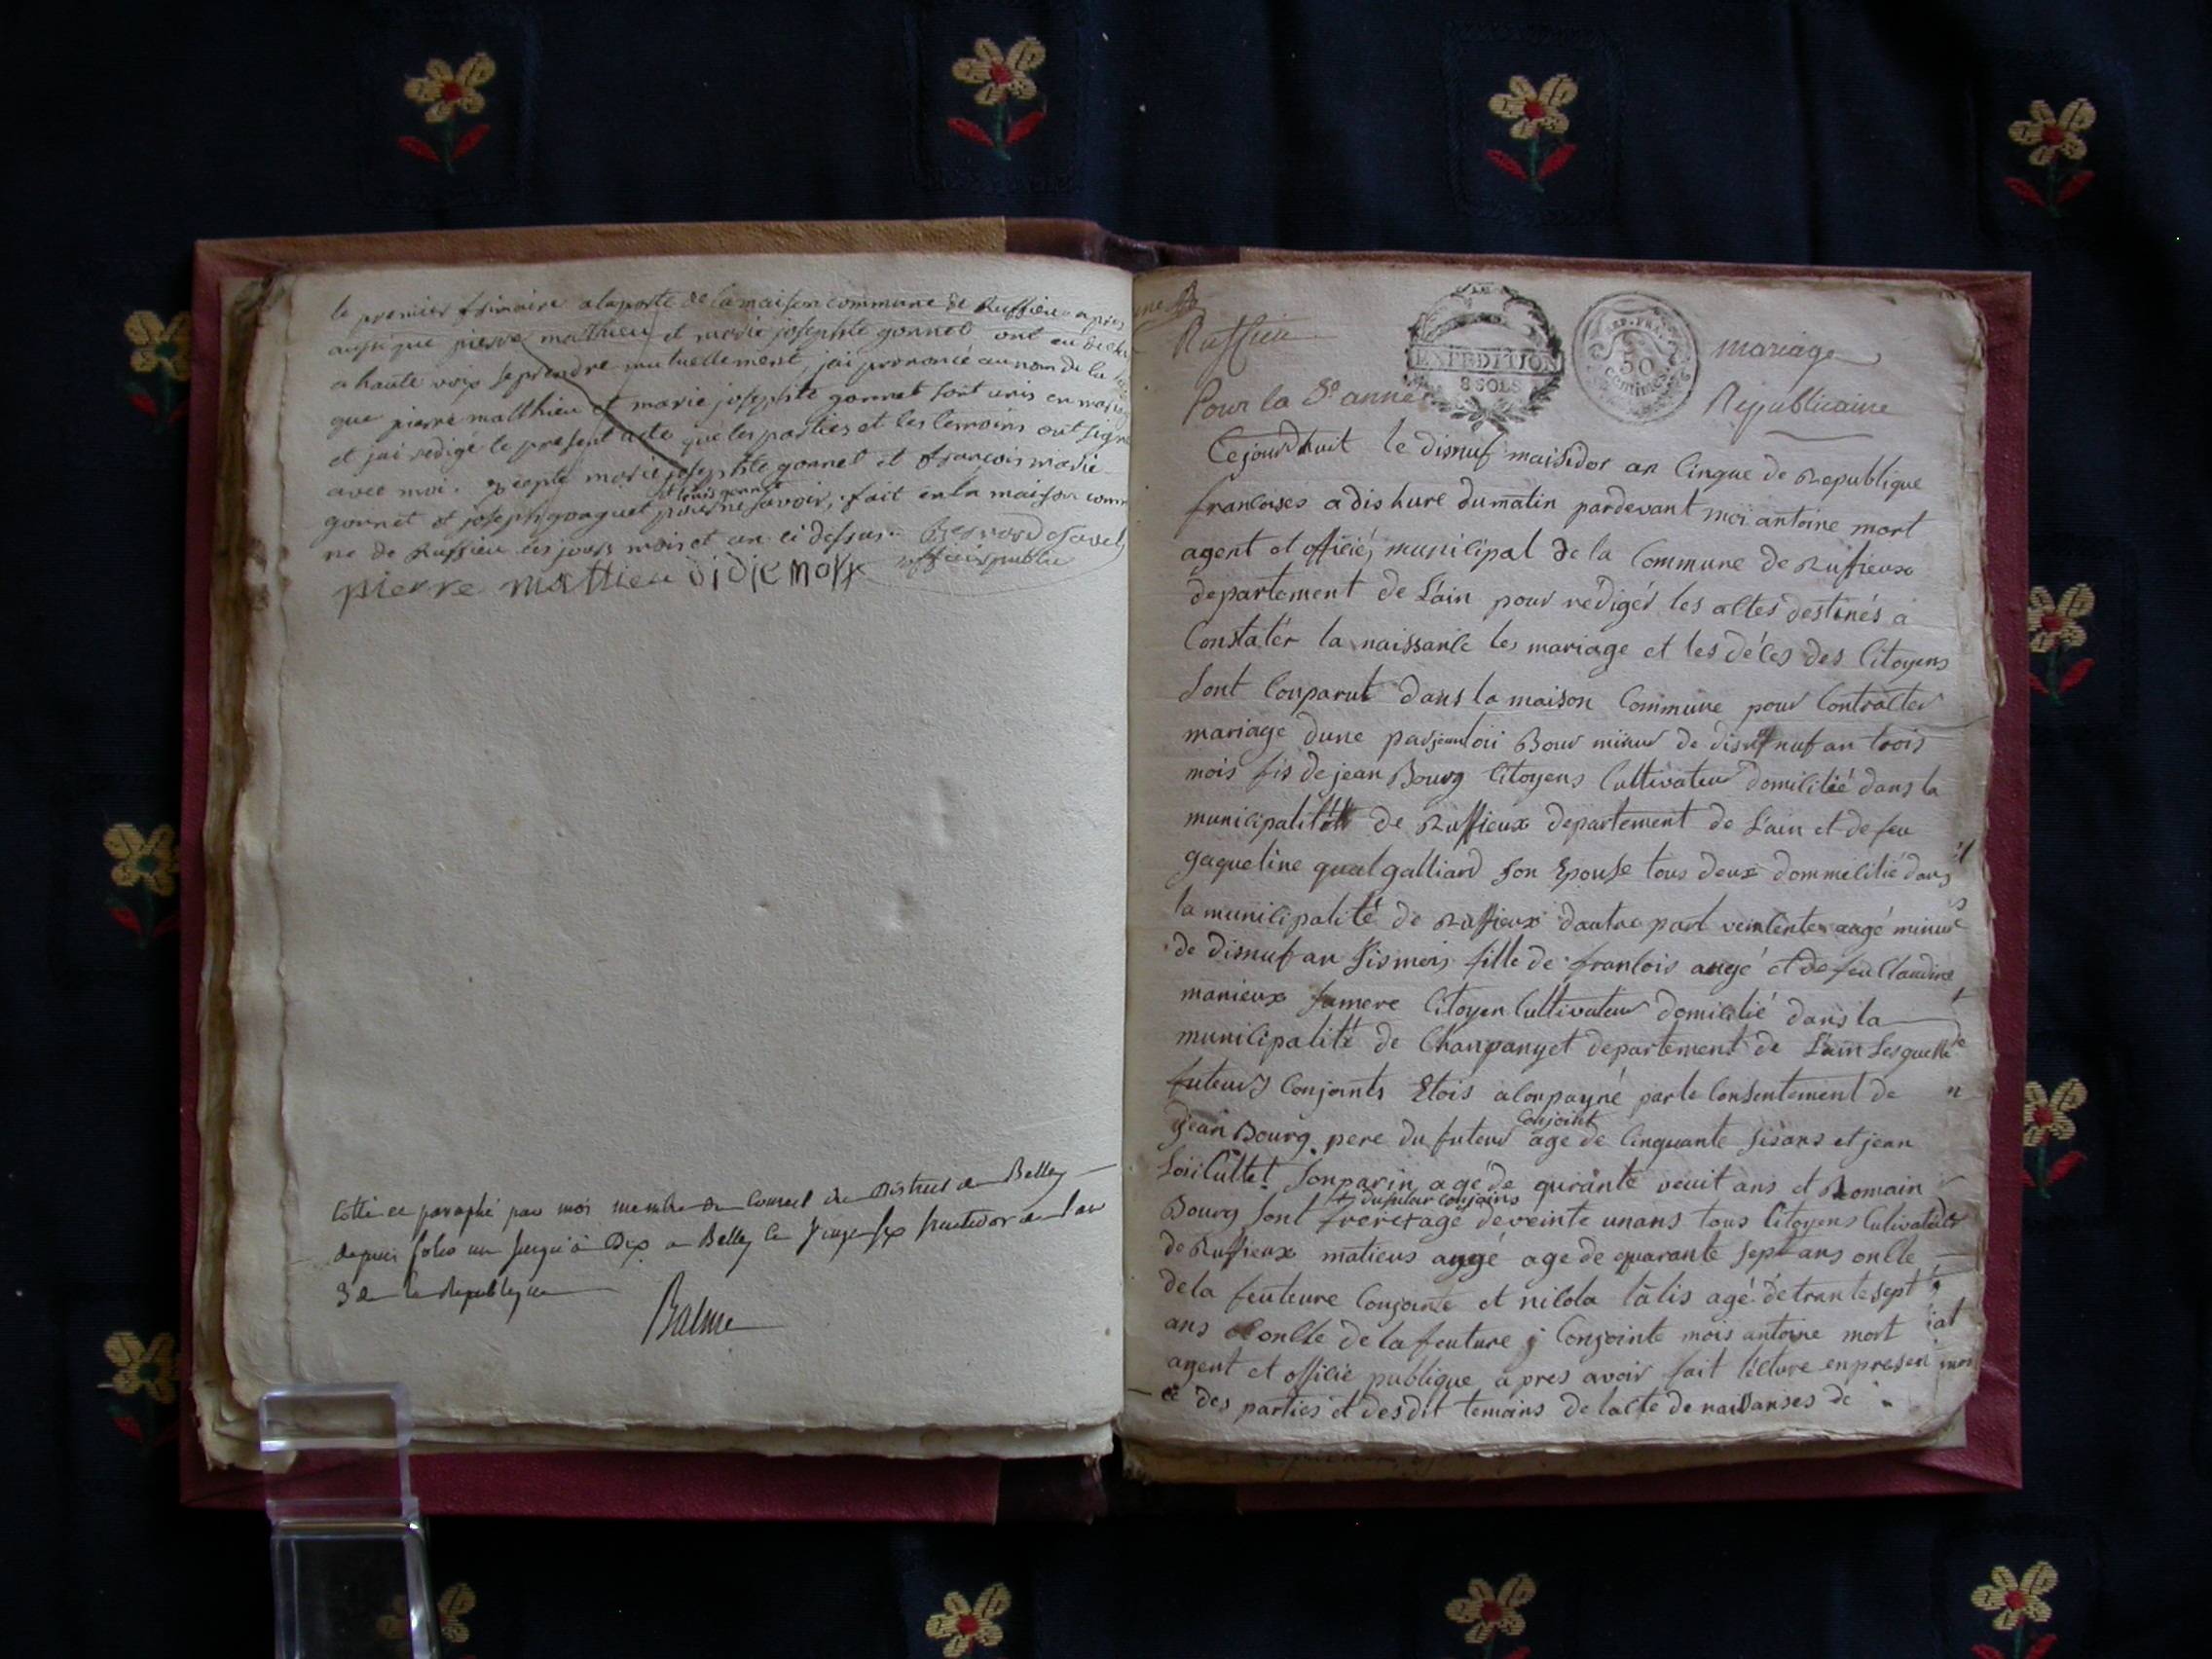 le premier frimaire a la porte de la maison commune de Ruffieu apres
aussi que pierre mathieu et marie josephte gonnet ont eu declaré
a haute voix se prendre mutuellement, jai prononcé au nom de la
que pierre matthieu et marie josephte gonnet sont unis en mariage
et jai redigé le present acte que les parties et les temoins ont signé
avec moi. Excepté marie josephte gonnet et francois marie
et louis gonnet
gonnet et joseph goaguet pour ne savoir, fait en la maison commu
ne de Ruffieu les jours mois et an ci dessus. Bernard
officier public
pierre mattieu didie
Cotté et paraphé par moi membre du Conseil du District de Belley
depuis folio un jusqu'à Dix a Belley le vingt six fructidor de l'an
3 de la Republique
Balme
Ruffieu
EXPEDITION
8 SOLS
REP. FRA.
50
Centimes
mariage
Pour la 5e année
Republicaine
Cejourdhuit le disnuf maisidor an Cinque de Republique
francoises a dis hure du matin pardevant moi antoine mort
agent et officié municipal de la Commune de Ruffieux
departement de Lain pour redigér les actes destinés a
Constatér la naissance les mariage et les déces des Citoyens
Sont Conparut dans la maison Commune pour Contracter
mariage dune par jean loui Bour minur de disnuf an trois
mois fis de jean Bourg Citoyens Cultivateur domicilié dans la
municipalité de Ruffieux departement de Lain et de feu
gaqueline galliard son Epouse tous deux dommicilié dans
la municipalité de Ruffieux dautre part augé minure
de disnuf an sis mois fille de francois augé et de feu Claudine
manieux samere Citoyen Cultivateur domicilié dans la
municipalité de Chanpanyet departement de Lain Lesquelle
futeurs Conjoints Etois aconpayné par le Consentement de
Conjoint
jean Bourg pere du futeur age de Cinquante sisans et jean
Loui Cultet sonparin agé de quranté veuit ans et Romain
Bourg sont frere agé de veinte unans tous Citoyens Culivateur
de Ruffieux matieus augé age de quarante sept ans oncle
dela feuteure Conjointe et nicola agé de trante sept
ans oncle de la feuture Conjointe mois antoine mort
agent et officié publique a pres avoir fait lécture enpresen
ce des parties et desdit temoins de lacte de naissanses de